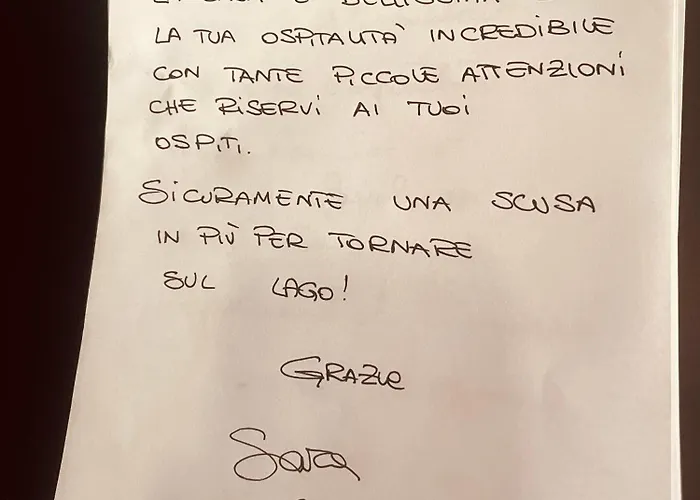 LA CASA È BELLISSIMA E
LA TUA OSPITALITÀ INCREDIBILE
CON TANTE PICCOLE ATTENZIONI
CHE RISERVI AI TUOI
OSPITI.
SICURAMENTE UNA SCUSA
IN PIÙ PER TORNARE
SUL LAGO!
GRAZIE
Sara